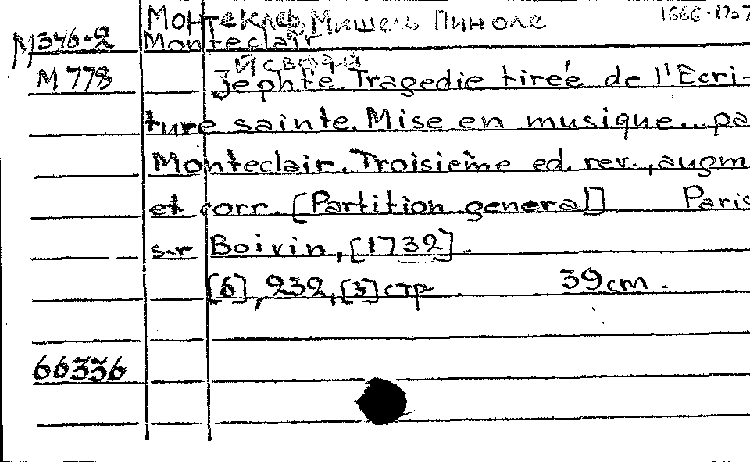 Монтеклер Мишель Пиноле 1666-1737
M376-2 Monteclair
M 778 Jephte. Tragedie tireé de l'Ecri-
ture sainte. Mise en musique... pa
Monteclair. Troisieme ed. rev., augm
et corr. [Partition general] Paris
sur Boivin, [1732].
[6], 232, [3] стр. 39cm.
66336